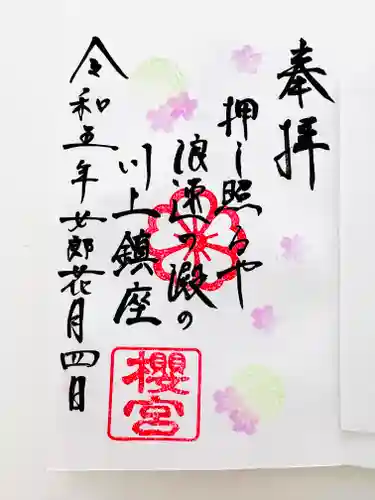 奉拝
押し照るや
浪速の澱の
川上鎮座
令和五年女郎花月四日
櫻宮